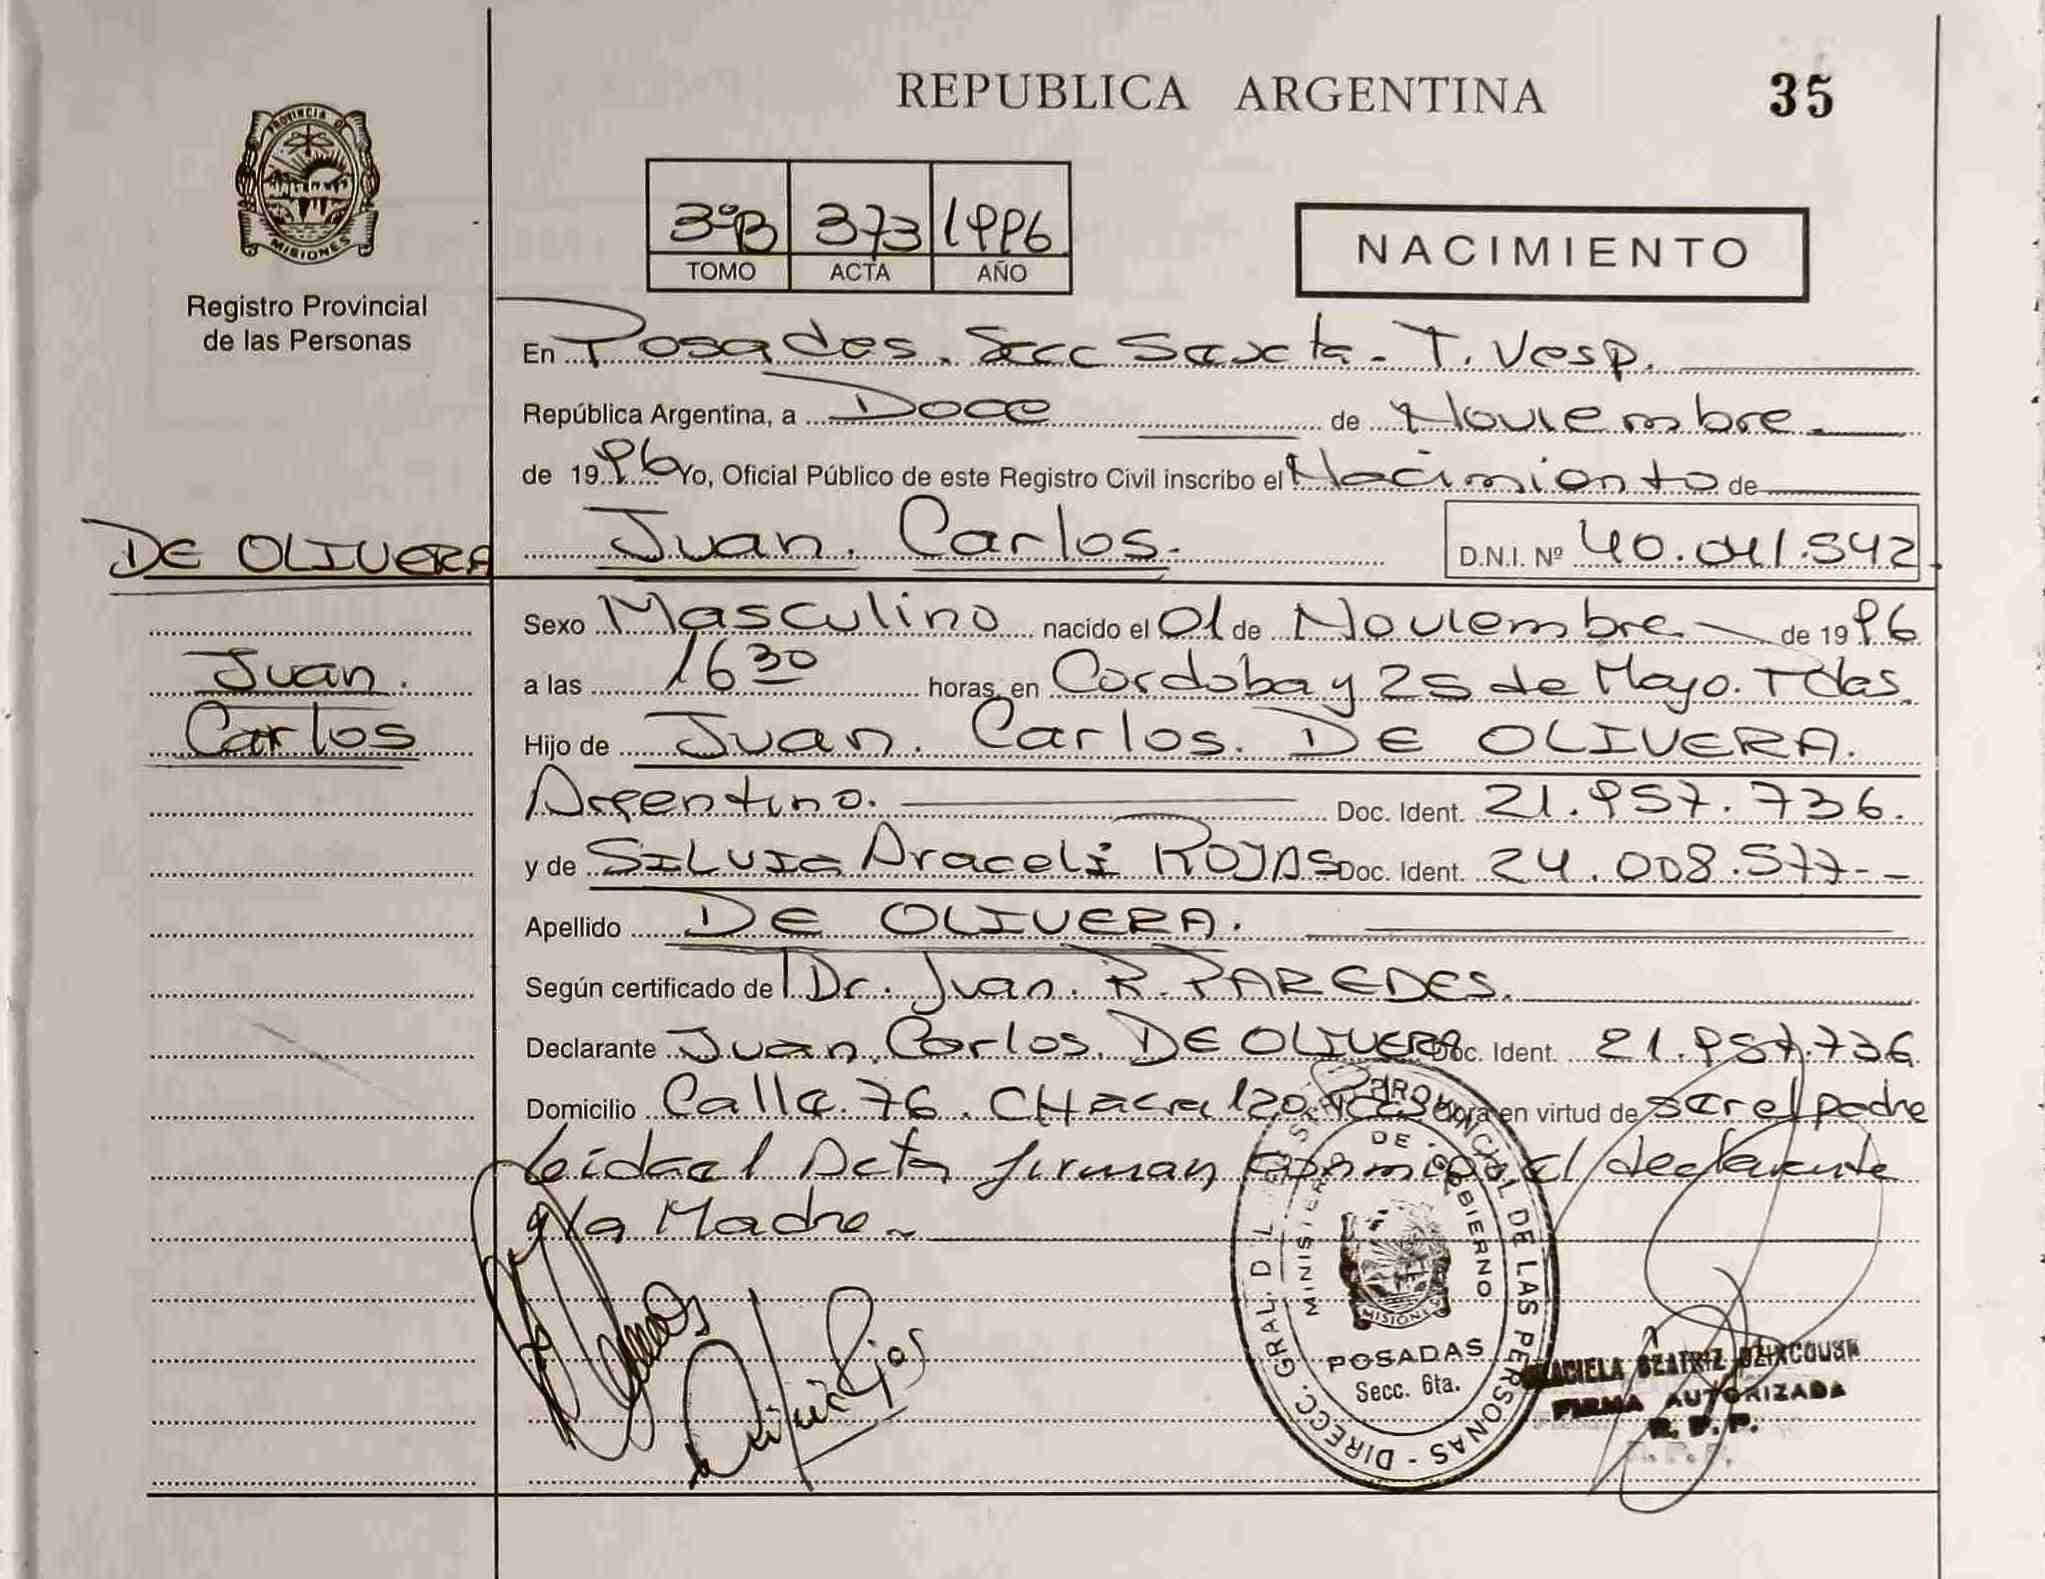 REPUBLICA ARGENTINA
35
PROVINCIA DE
MISIONES
Registro Provincial
de las Personas
3ºB 373 1996
TOMO ACTA AÑO
NACIMIENTO
En Posadas. Secc Sexta - T. Vesp.
República Argentina, a Doce de Noviembre
de 1996 Yo, Oficial Público de este Registro Civil inscribo el Nacimiento de
DE OLIVERA
Juan. Carlos. D.N.I. Nº 40.041.542
Sexo Masculino nacido el 01 de Noviembre de 1996
Juan.
Carlos
a las 16 30 horas, en Cordoba y 25 de Mayo. Pdas.
Hijo de Juan. Carlos. DE OLIVERA.
Argentino. Doc. Ident. 21.957.736.
y de SILVIA Araceli ROJAS Doc. Ident. 24.008.577--
Apellido DE OLIVERA.
Según certificado de l Dr. Juan. R. PAREDES.
Declarante Juan Carlos. DE OLIVERA Doc. Ident. 21.957.736
Domicilio Calle. 76. CHacra 120 Pdas Obra en virtud de ser el padre
Leida el Acta firman conmigo el declarante
y la Madre
DIRECC. GRAL. DEL REGISTRO PROVINCIAL DE LAS PERSONAS
MINISTERIO DE GOBIERNO
MISIONES
POSADAS
Secc. 6ta.
GRACIELA BEATRIZ
FIRMA AUTORIZADA
R. P. P.